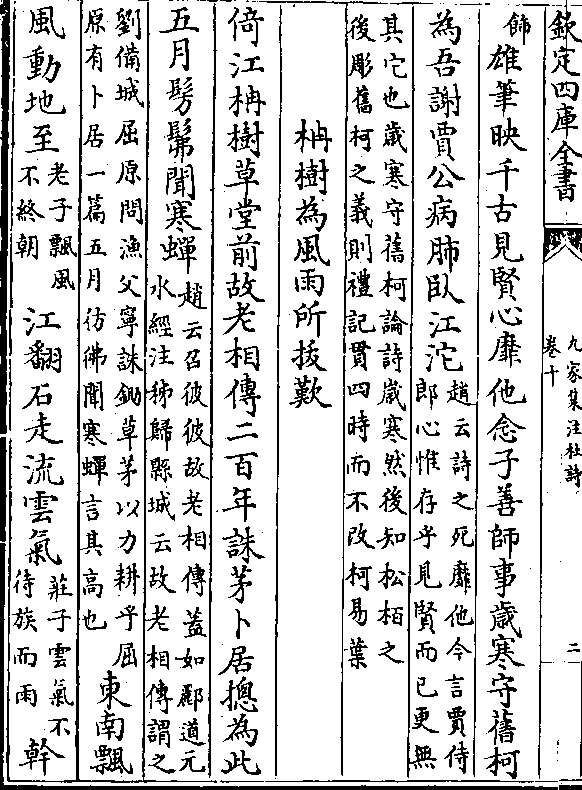 欽定四庫全書
九家集注杜詩
卷十
二
飾雄筆映千古見賢心靡他念子善師事歲寒守舊柯
為吾謝賈公病肺臥江沱
趙云詩之死靡他今言賈侍
郎心惟存乎見賢而已更無
其它也歲寒守舊柯論詩歲寒然後知松栢之
後彫舊柯之義則禮記貫四時而不改柯易葉
柟樹為風雨所拔歎
倚江柟樹草堂前故老相傳二百年誅茅卜居摠為此
五月髣髴聞寒蟬
趙云召彼彼故老相傳蓋如酈道元
水經注秭歸縣城云故老相傳謂之
劉備城屈原問漁父寧誅鋤草茅以力耕乎屈
原有卜居一篇五月彷佛聞寒蟬言其高也
東南飄
風動地至
老子飄風
不終朝
江翻石走流雲氣
莊子雲氣不
待族而雨
幹